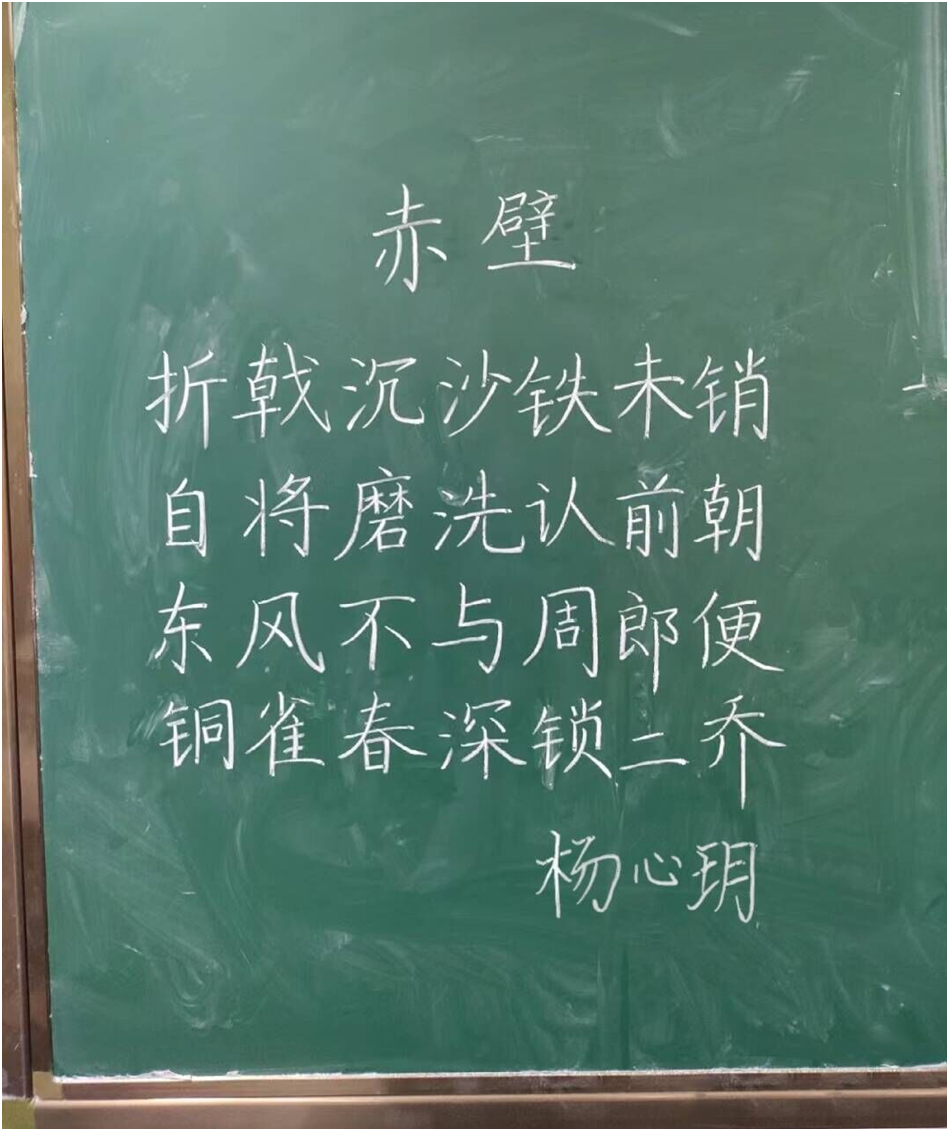 赤壁
折戟沉沙铁未销
自将磨洗认前朝
东风不与周郎便
铜雀春深锁二乔
杨心玥